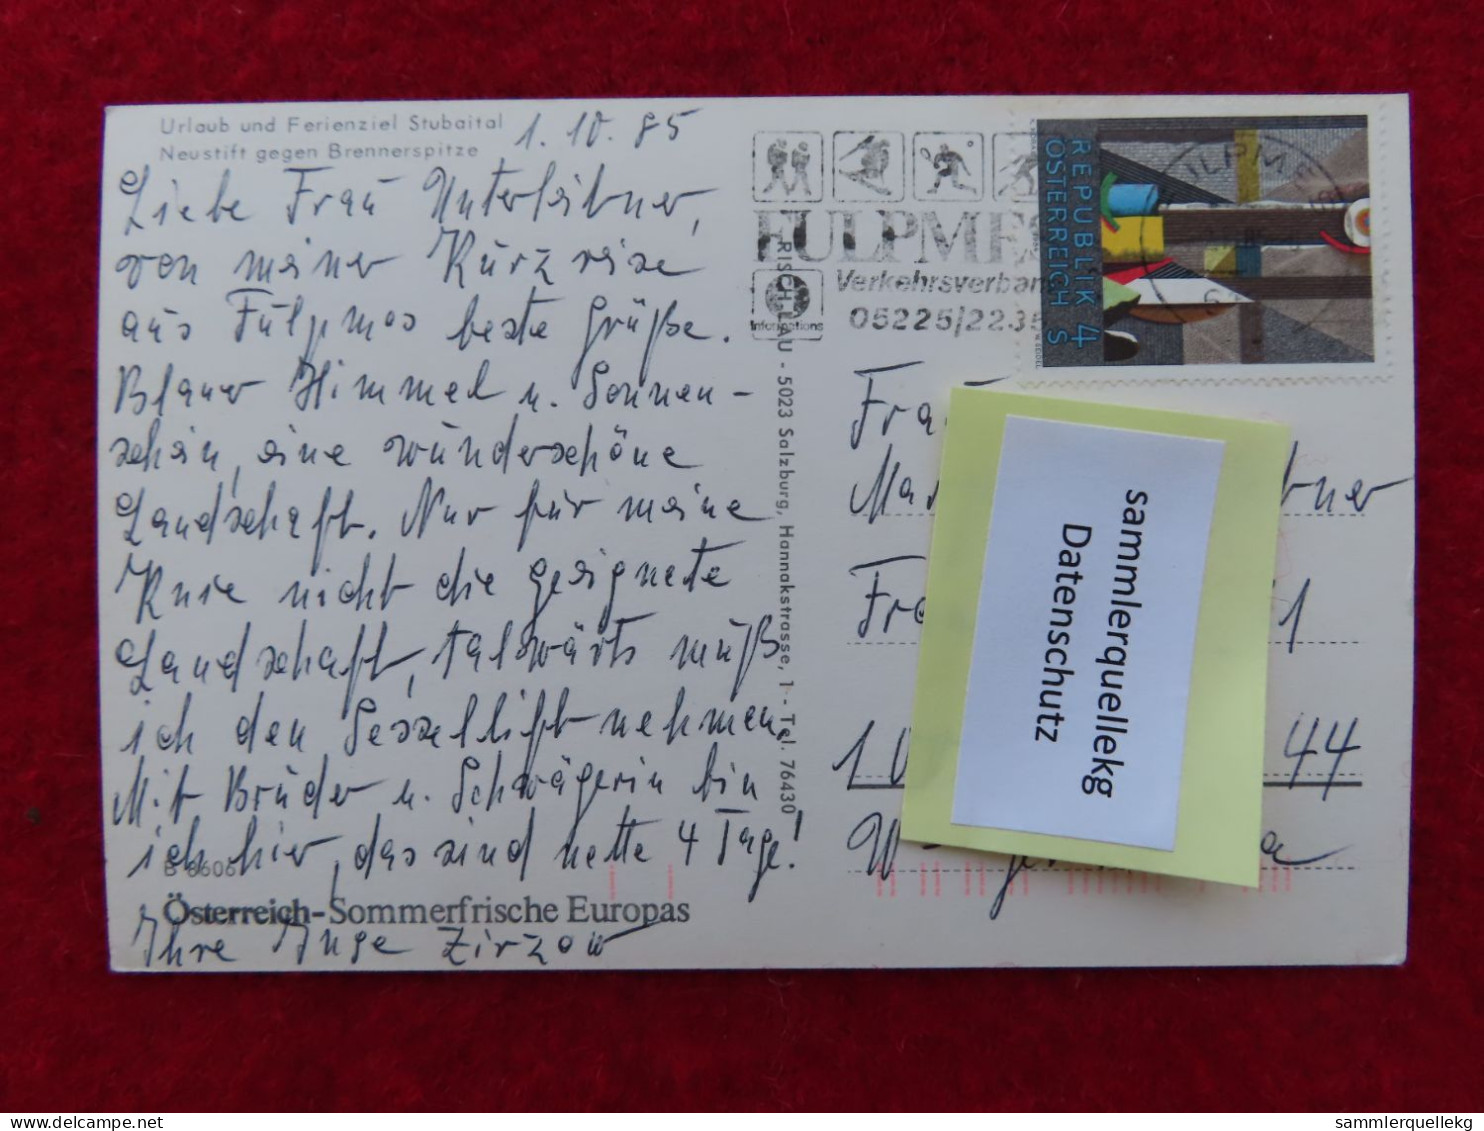 Urlaub und Ferienziel Stubaital
Neustift gegen Brennerspitze
1.10.85
Liebe Frau Unterleibner,
von meiner Kurzreise
aus Fulpmes beste Grüße.
Blauer Himmel u. Sonnen-
schein, eine wunderschöne
Landschaft. Nur für meine
Knie nicht die geeignete
Landschaft, talwärts muß
ich den Sessellift nehmen.
Mit Bruder u. Schwägerin bin
ich hier, das sind nette 4 Tage!
B 6606
Österreich-Sommerfrische Europas
Ihre Inge Zirzow
RISCH-LAU - 5023 Salzburg, Hannakstrasse, 1 - Tel. 76430
FULPMES
Verkehrsverband
Informations
05225/22 35
REPUBLIK
ÖSTERREICH S 4
FULPMES
Fra
Ma
bner
Fr
1
10
44
W
a
sammlerquellekg
Datenschutz
sammlerquellekg